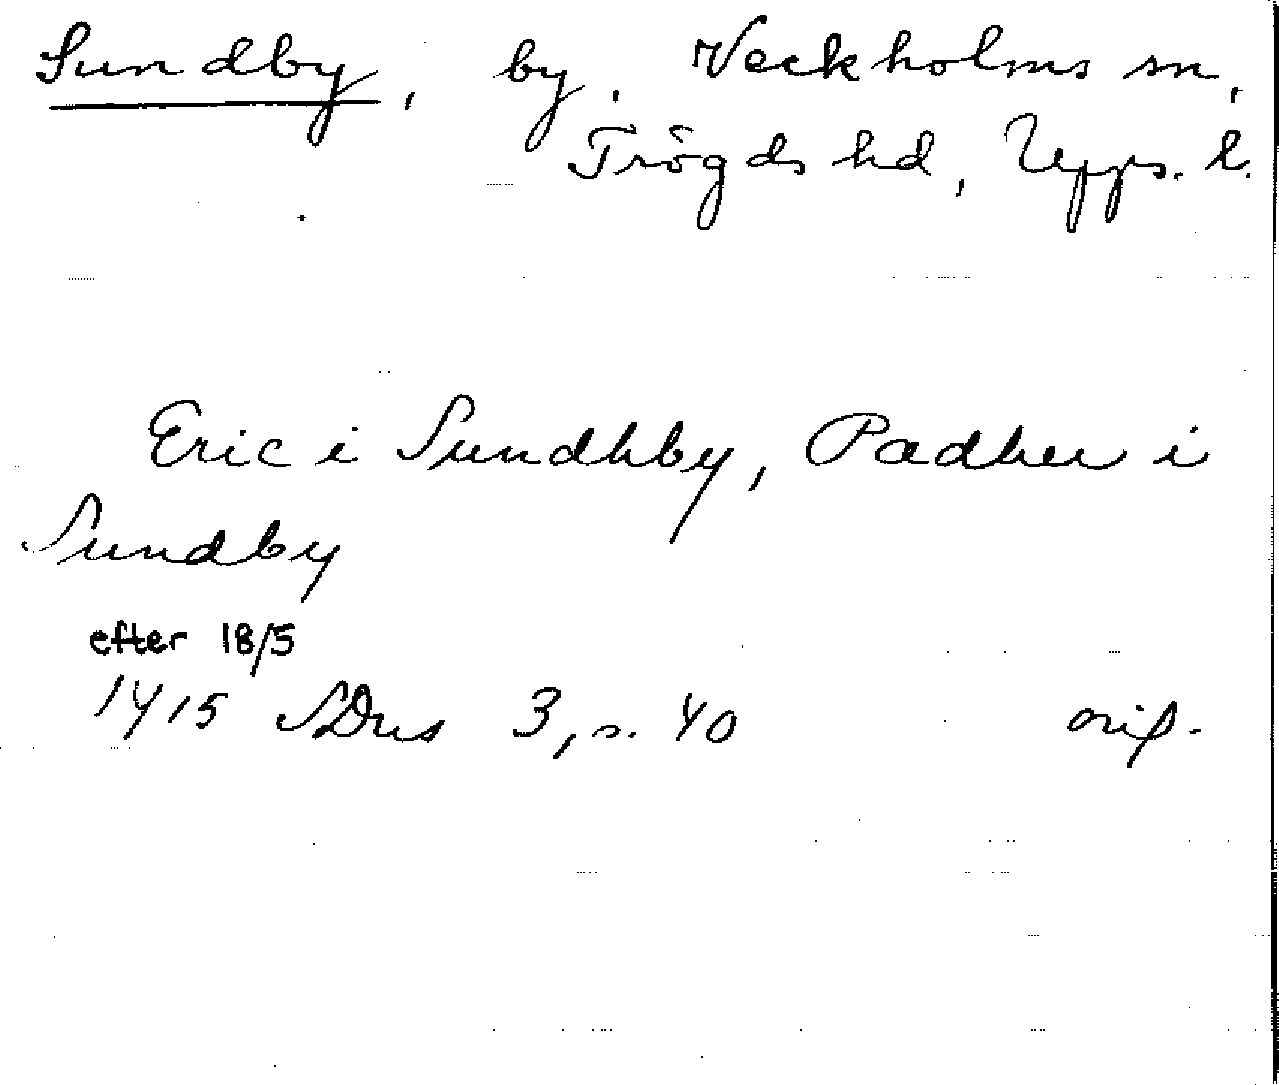 Sundby, by, Veckholms sn,
Trögds hd, Upps. l.
Eric i Sundhby, Pædher i
Sundby
efter 18/5
1415 SDns 3, s. 40 orig.